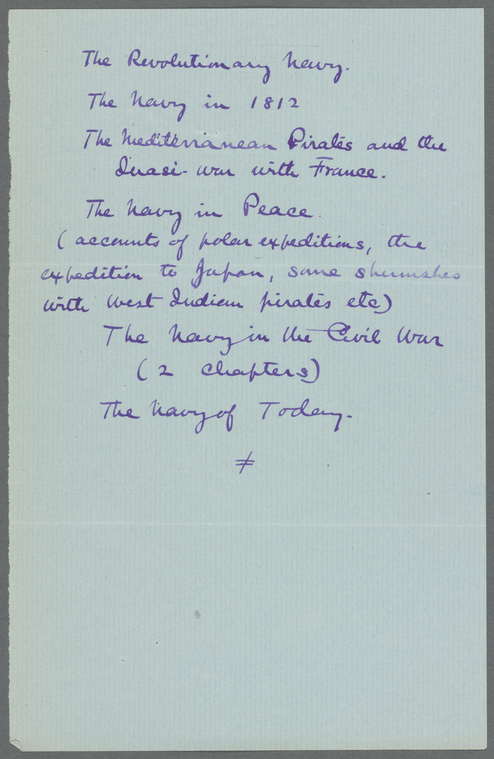 The Revolutionary Navy.
The Navy in 1812
The Mediterranean Pirates and the
Quasi-war with France.
The Navy in Peace.
(accounts of polar expeditions, the
expedition to Japan, some skirmishes
with West Indian pirates etc)
The Navy in the Civil War
(2 chapters)
The Navy of Today.
≠